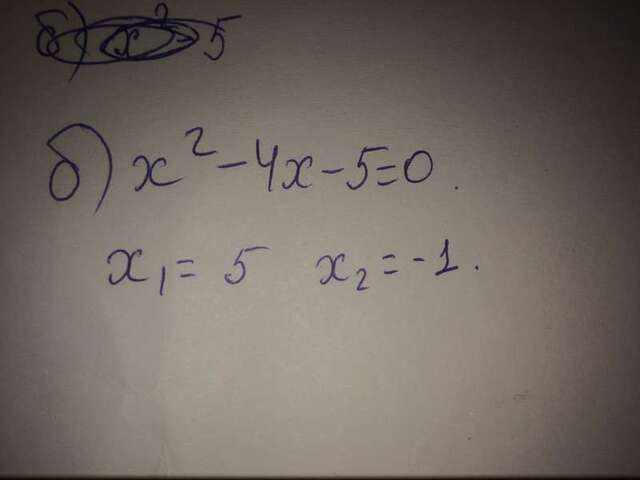 б) x² - 5
б) x² - 4x - 5 = 0.
x₁ = 5 x₂ = -1.